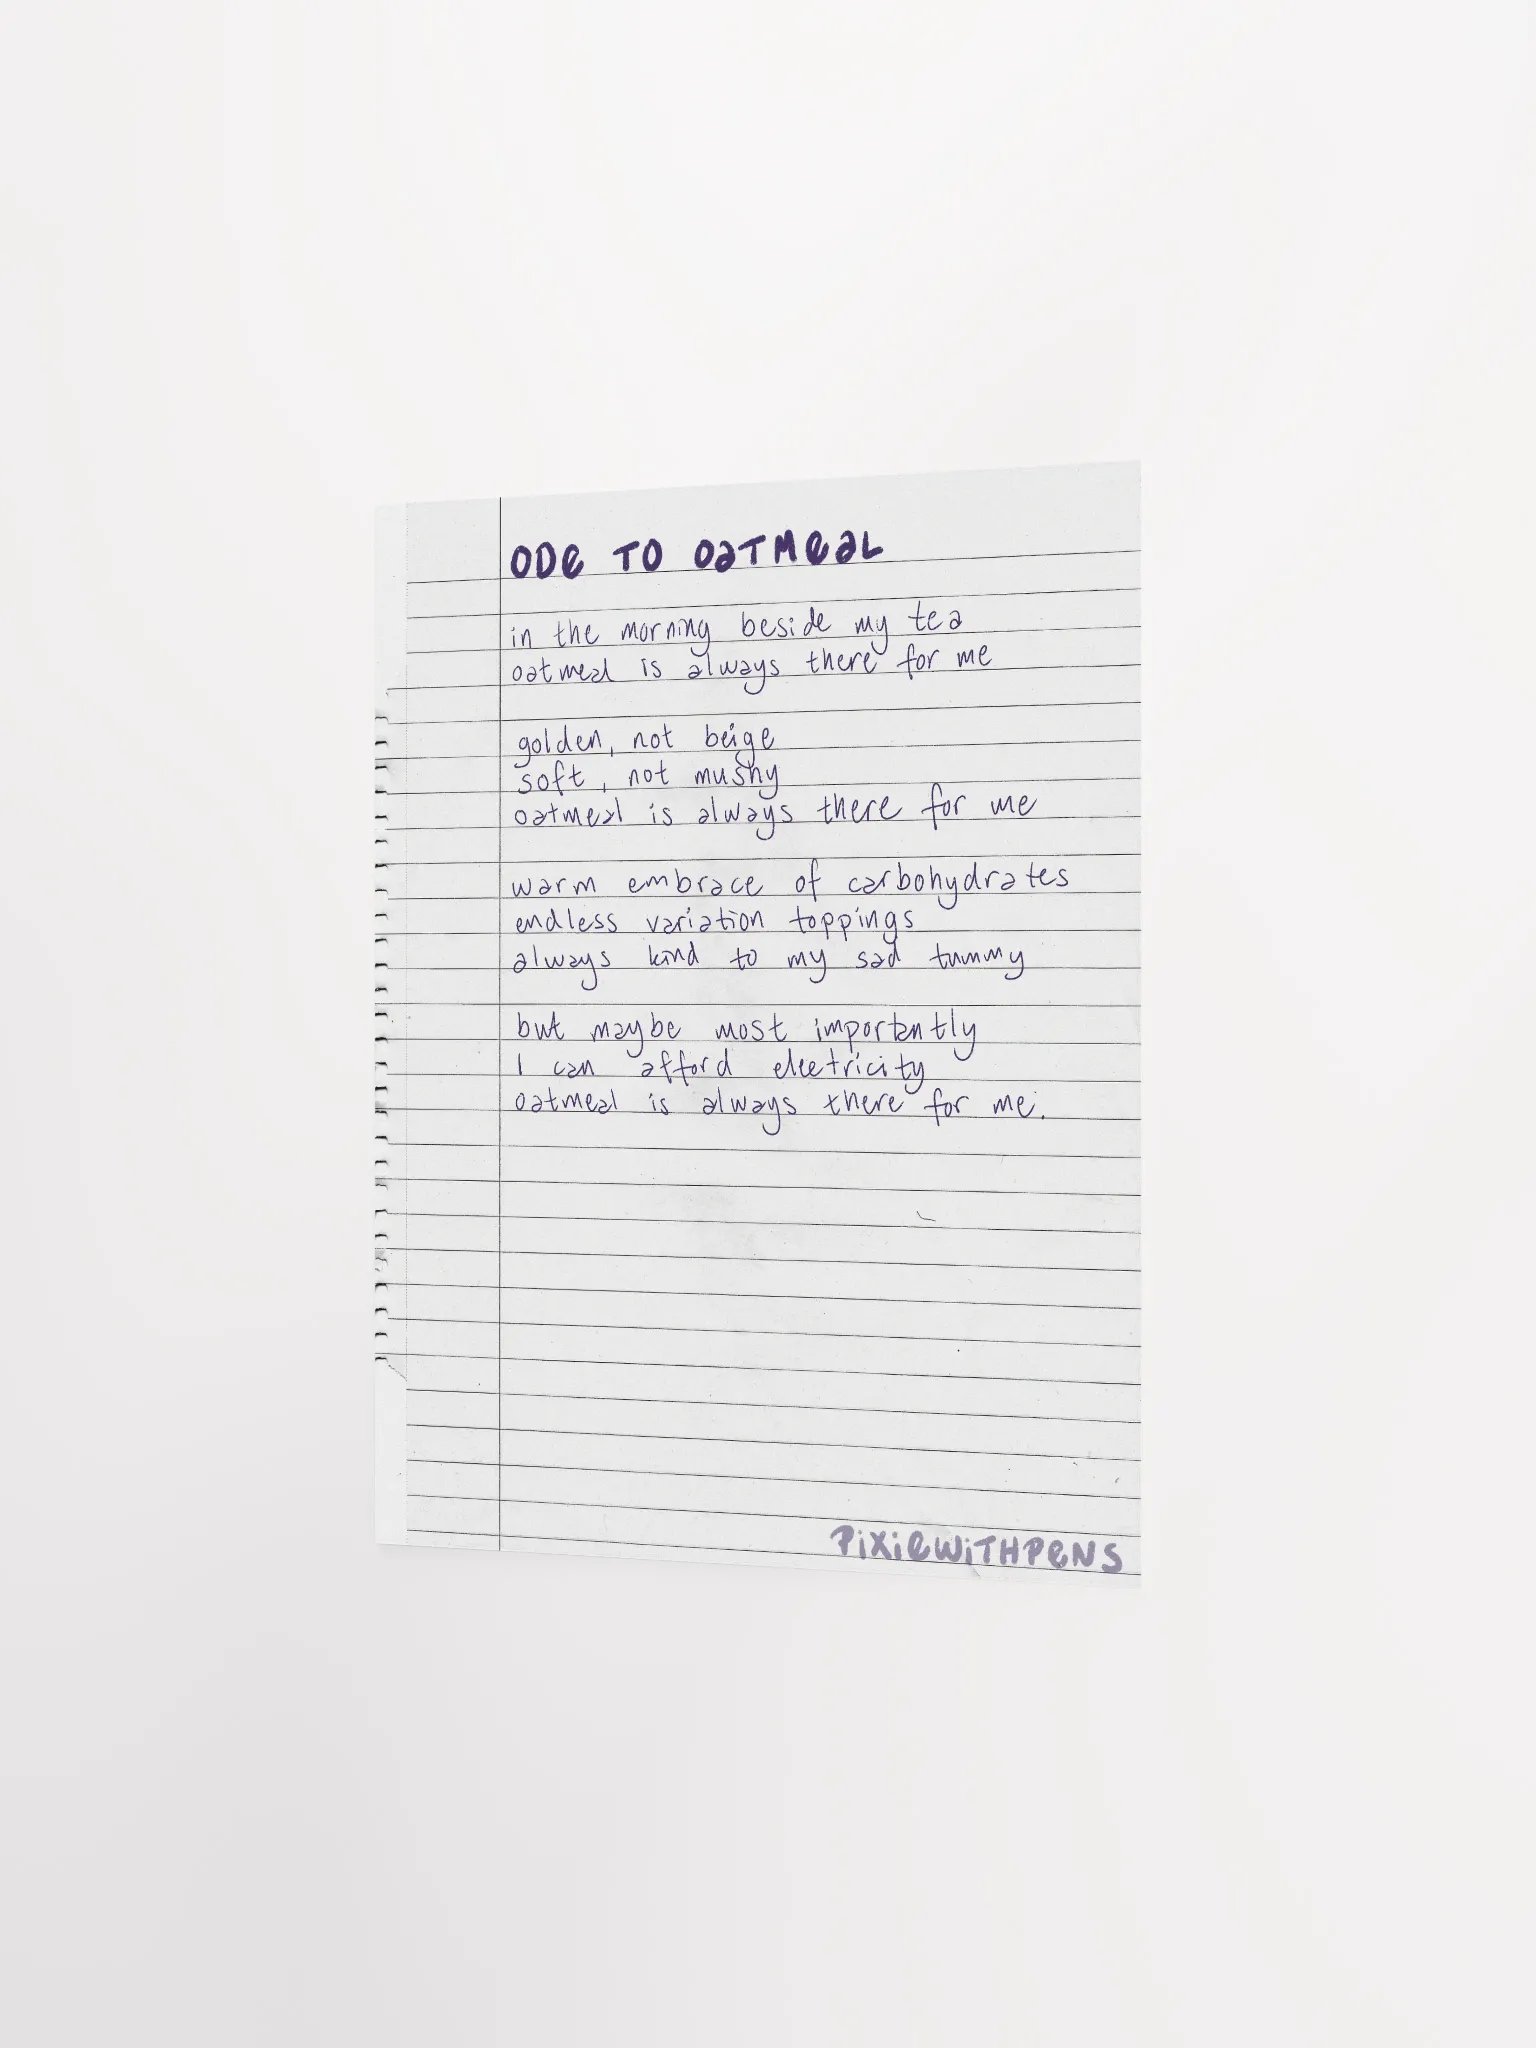 ODe TO OaTMeaL
in the morning beside my tea
oatmeal is always there for me
golden, not beige
soft, not mushy
oatmeal is always there for me
warm embrace of carbohydrates
endless variation toppings
always kind to my sad tummy
but maybe most importantly
I can afford electricity
oatmeal is always there for me.
PiXieWiTHPeNS